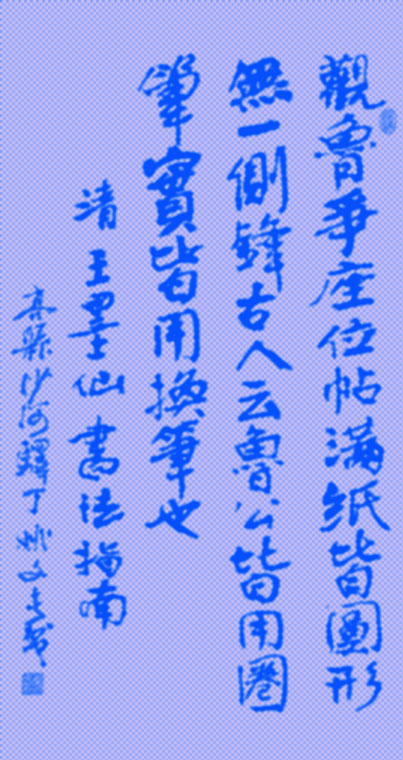 觀魯爭座位帖滿紙皆圓形
無一側鋒古人云魯公皆用圈
筆實皆用換筆也
清 王墨仙 書法指南
縣沙河驛丁 文